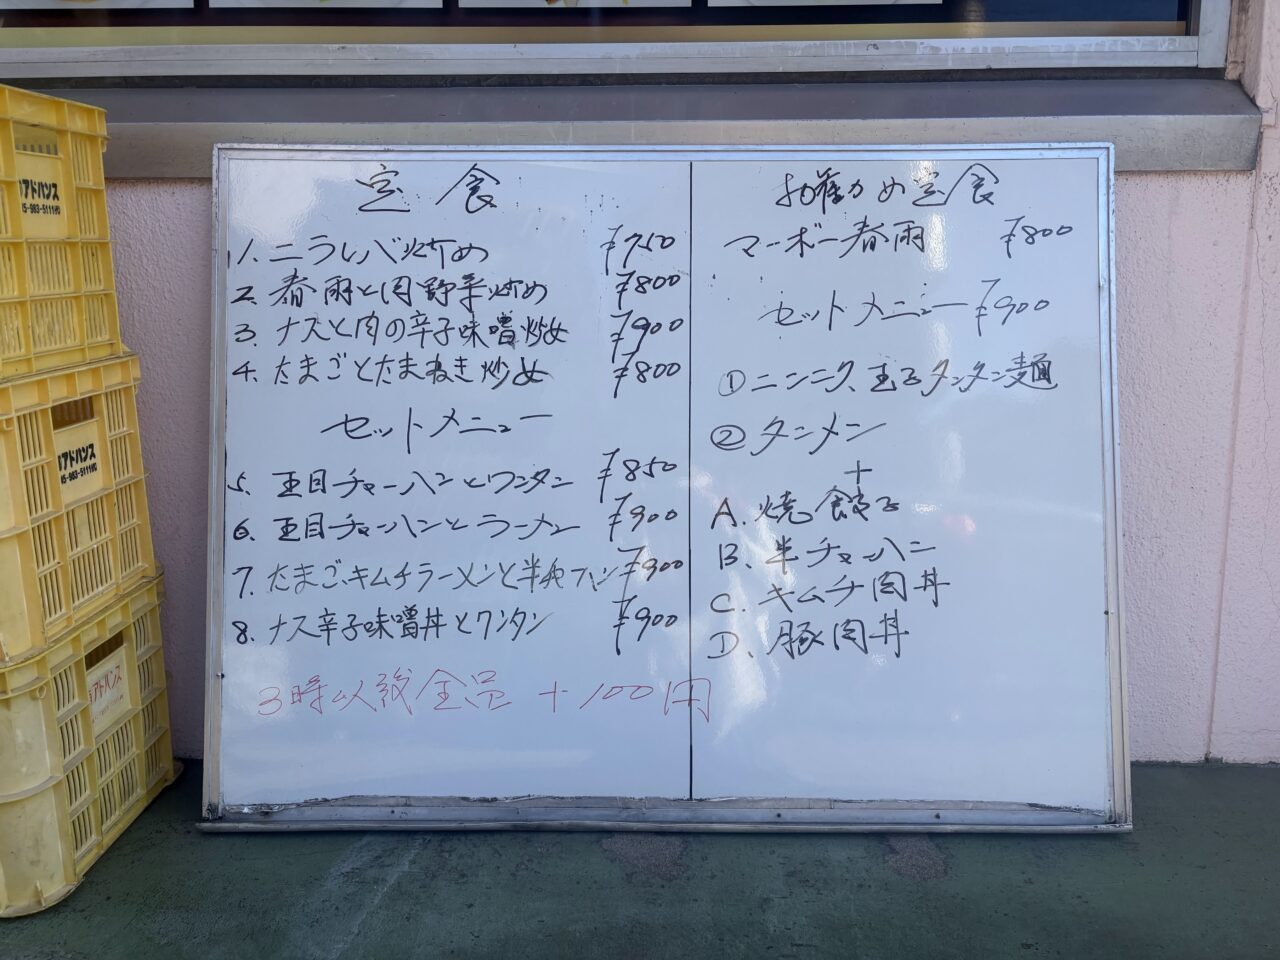 定食
1. ニラレバ炒め ¥750
2. 春雨と肉野菜炒め ¥800
3. ナスと肉の辛子味噌炒め ¥900
4. たまごとたまねぎ炒め ¥800
セットメニュー
5. 五目チャーハンとワンタン ¥850
6. 五目チャーハンとラーメン ¥900
7. たまごキムチラーメンと半チャーハン ¥900
8. ナス辛子味噌丼とワンタン ¥900
3時以後全品 +100円
お薦め定食
マーボー春雨 ¥800
セットメニュー ¥900
① ニンニク玉子タンタン麺
② タンメン
+
A. 焼餃子
B. 半チャーハン
C. キムチ肉丼
D. 豚肉丼
アドバンス
5-983-5111㈹
アドバンス
45-983-5111㈹
アドバンス